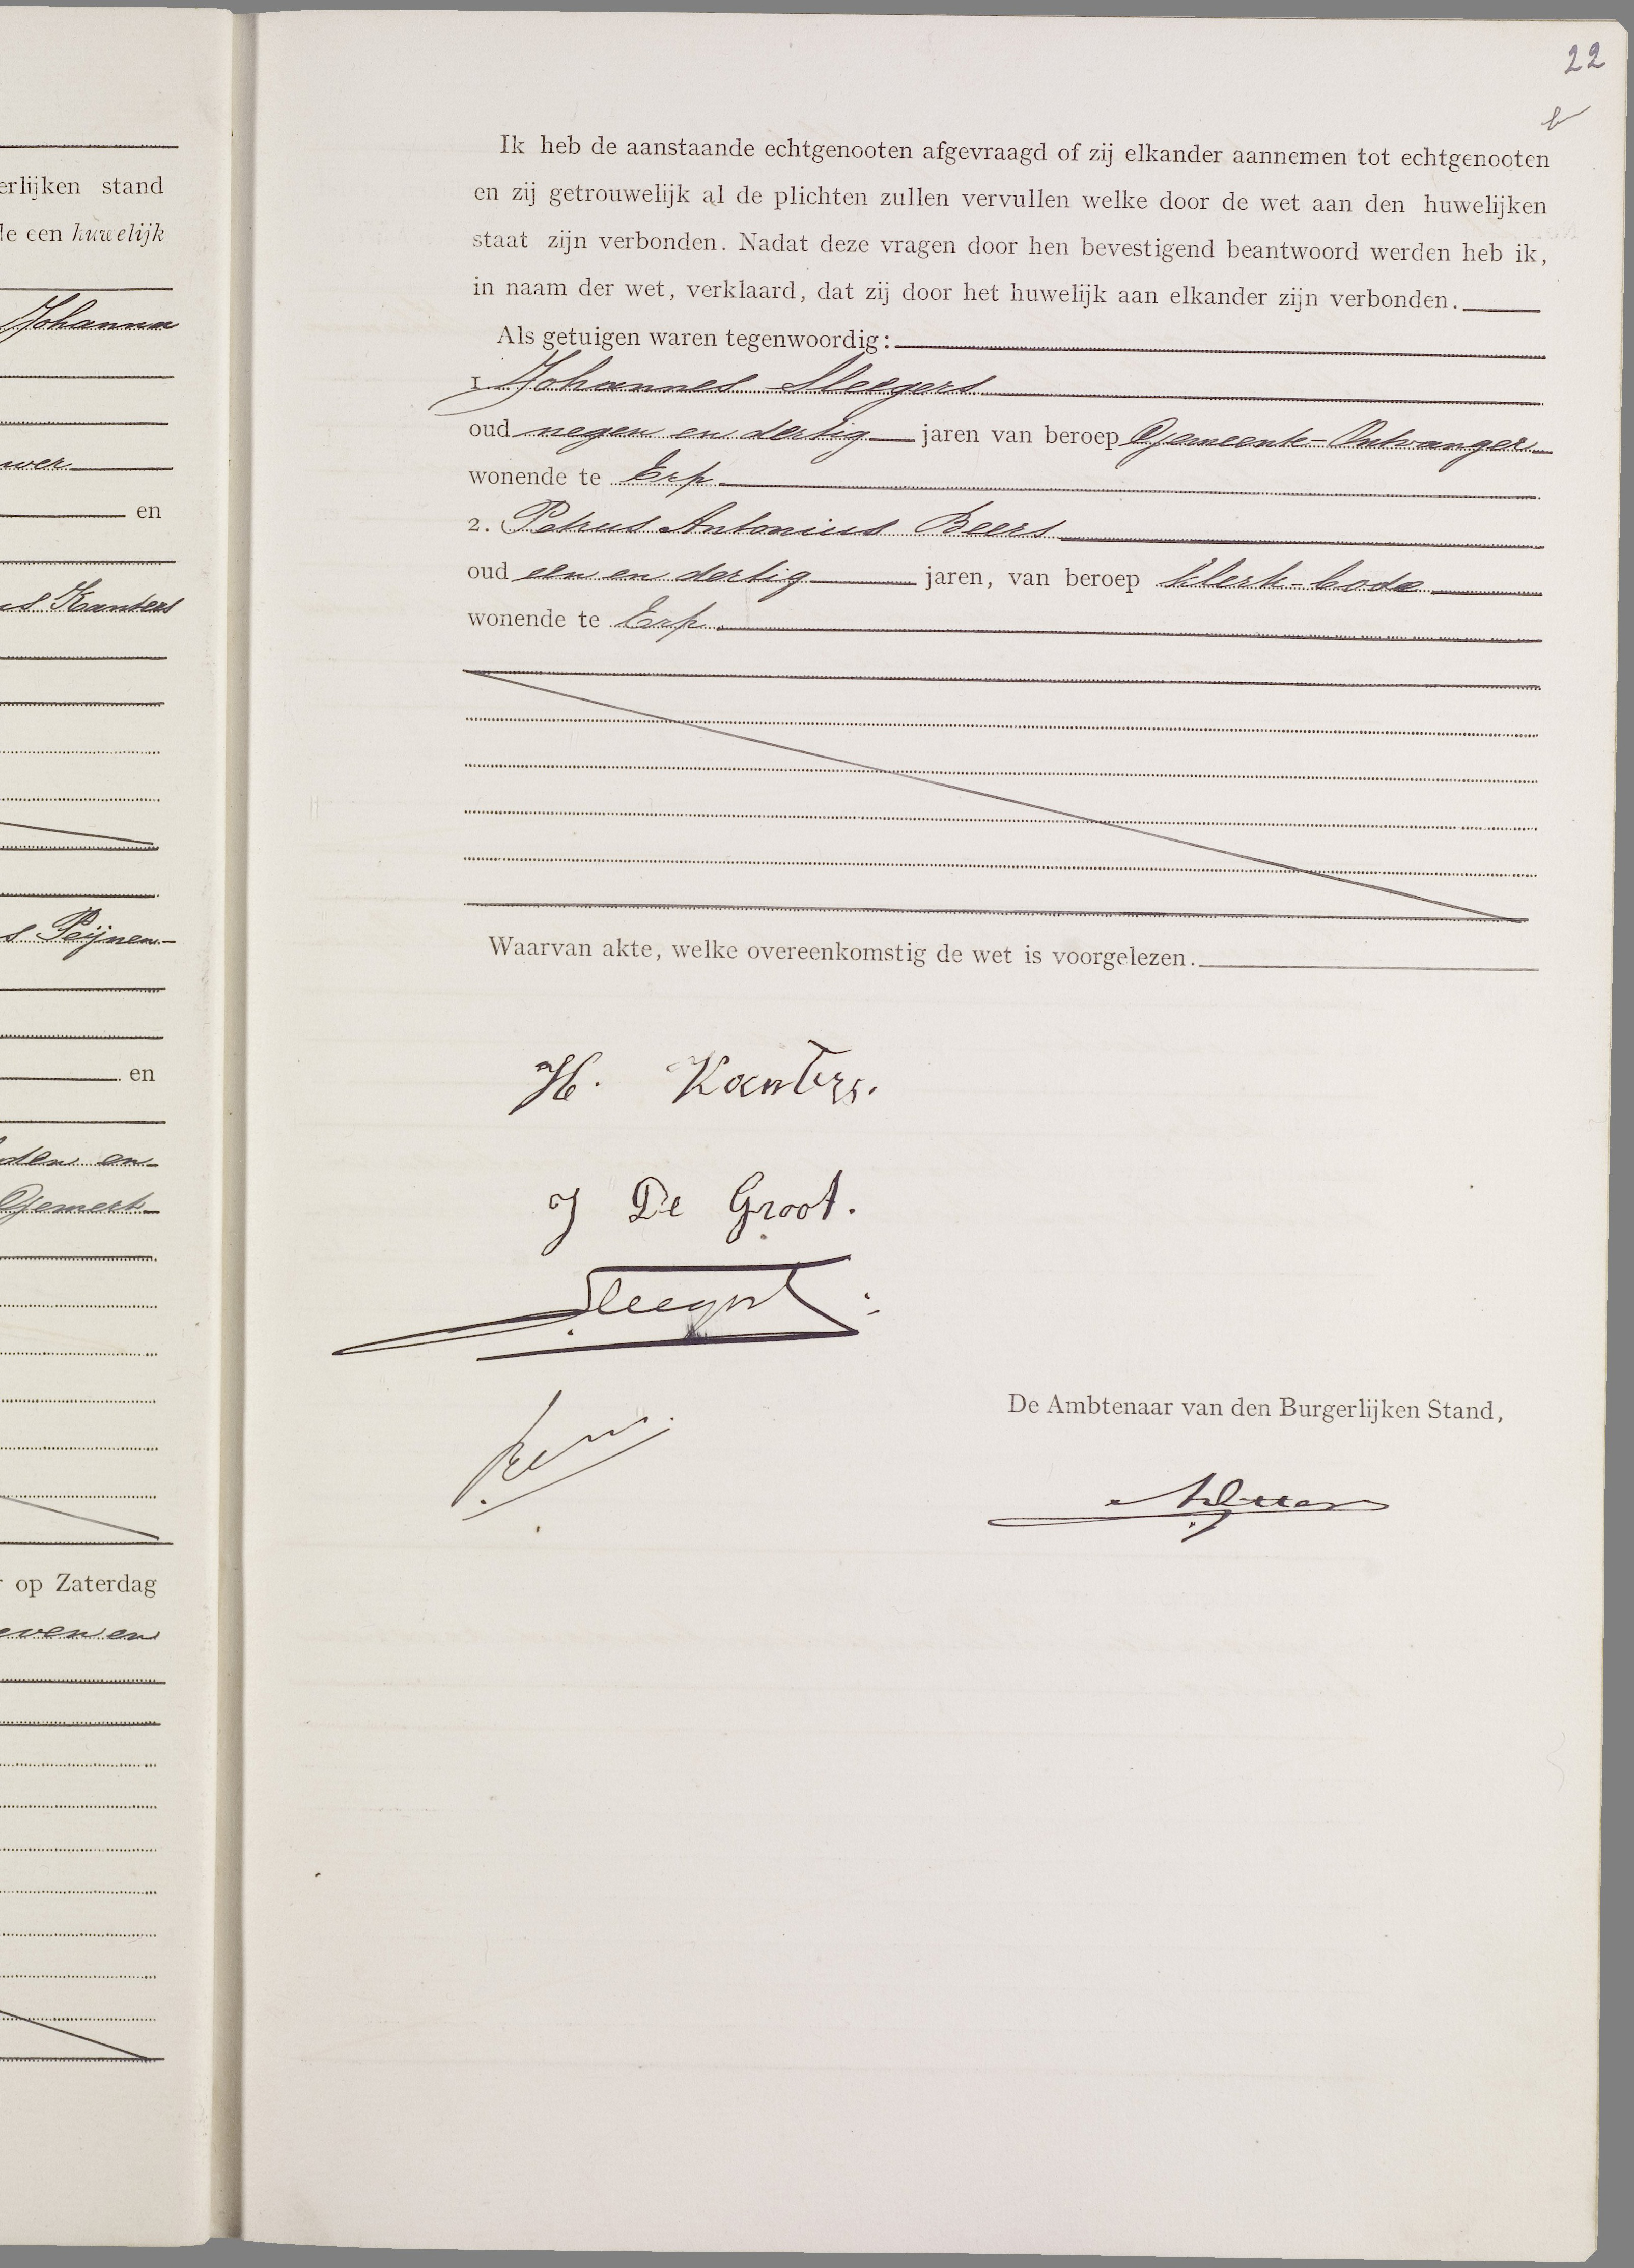 erlijken stand
de een huwelijk
Johanna
en
Kanters
Peijnen-
en
den en
Gemert
op Zaterdag
even en
22
b
Ik heb de aanstaande echtgenooten afgevraagd of zij elkander aannemen tot echtgenooten
en zij getrouwelijk al de plichten zullen vervullen welke door de wet aan den huwelijken
staat zijn verbonden. Nadat deze vragen door hen bevestigend beantwoord werden heb ik,
in naam der wet, verklaard, dat zij door het huwelijk aan elkander zijn verbonden.
Als getuigen waren tegenwoordig:
1. Johannes Sleegers
oud negen en dertig jaren van beroep Gemeente-Ontvanger
wonende te Erp.
2. Petrus Antonius Beers
oud een en dertig jaren, van beroep klerk-bode
wonende te Erp.
Waarvan akte, welke overeenkomstig de wet is voorgelezen.
H. Kanters.
J De Groot.
Sleegers
De Ambtenaar van den Burgerlijken Stand,